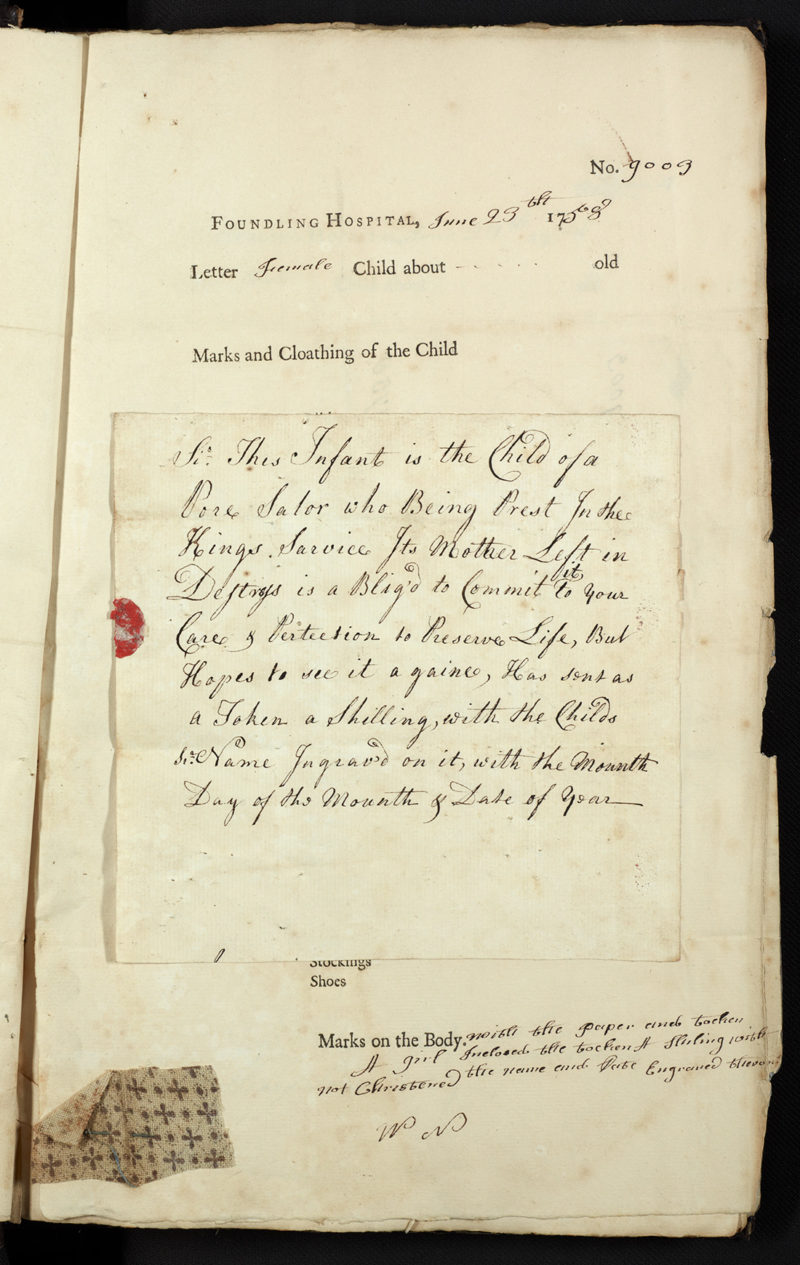 No. 9003
FOUNDLING HOSPITAL, June 23th 1758
Letter Female Child about - - - - - old
Marks and Cloathing of the Child
Sr. This Infant is the Child of a
Pore Salor who Being Prest In the
Kings Sarvice Its Mother Left in
Destrys is a Blig'd to Commit it to Your
Care & Pertection to Preserve Life, But
Hopes to see it a gaine, Has sent as
a Token a Shilling, with the Childs
Sr. Name Ingrav'd on it, with the Mounth
Day of the Mounth & Date of Year
Stockings
Shoes
Marks on the Body. with the paper and tocken
A girl Inclosed the tocken A Shiling with
not Christened the name and Date Engraved thereon
W N